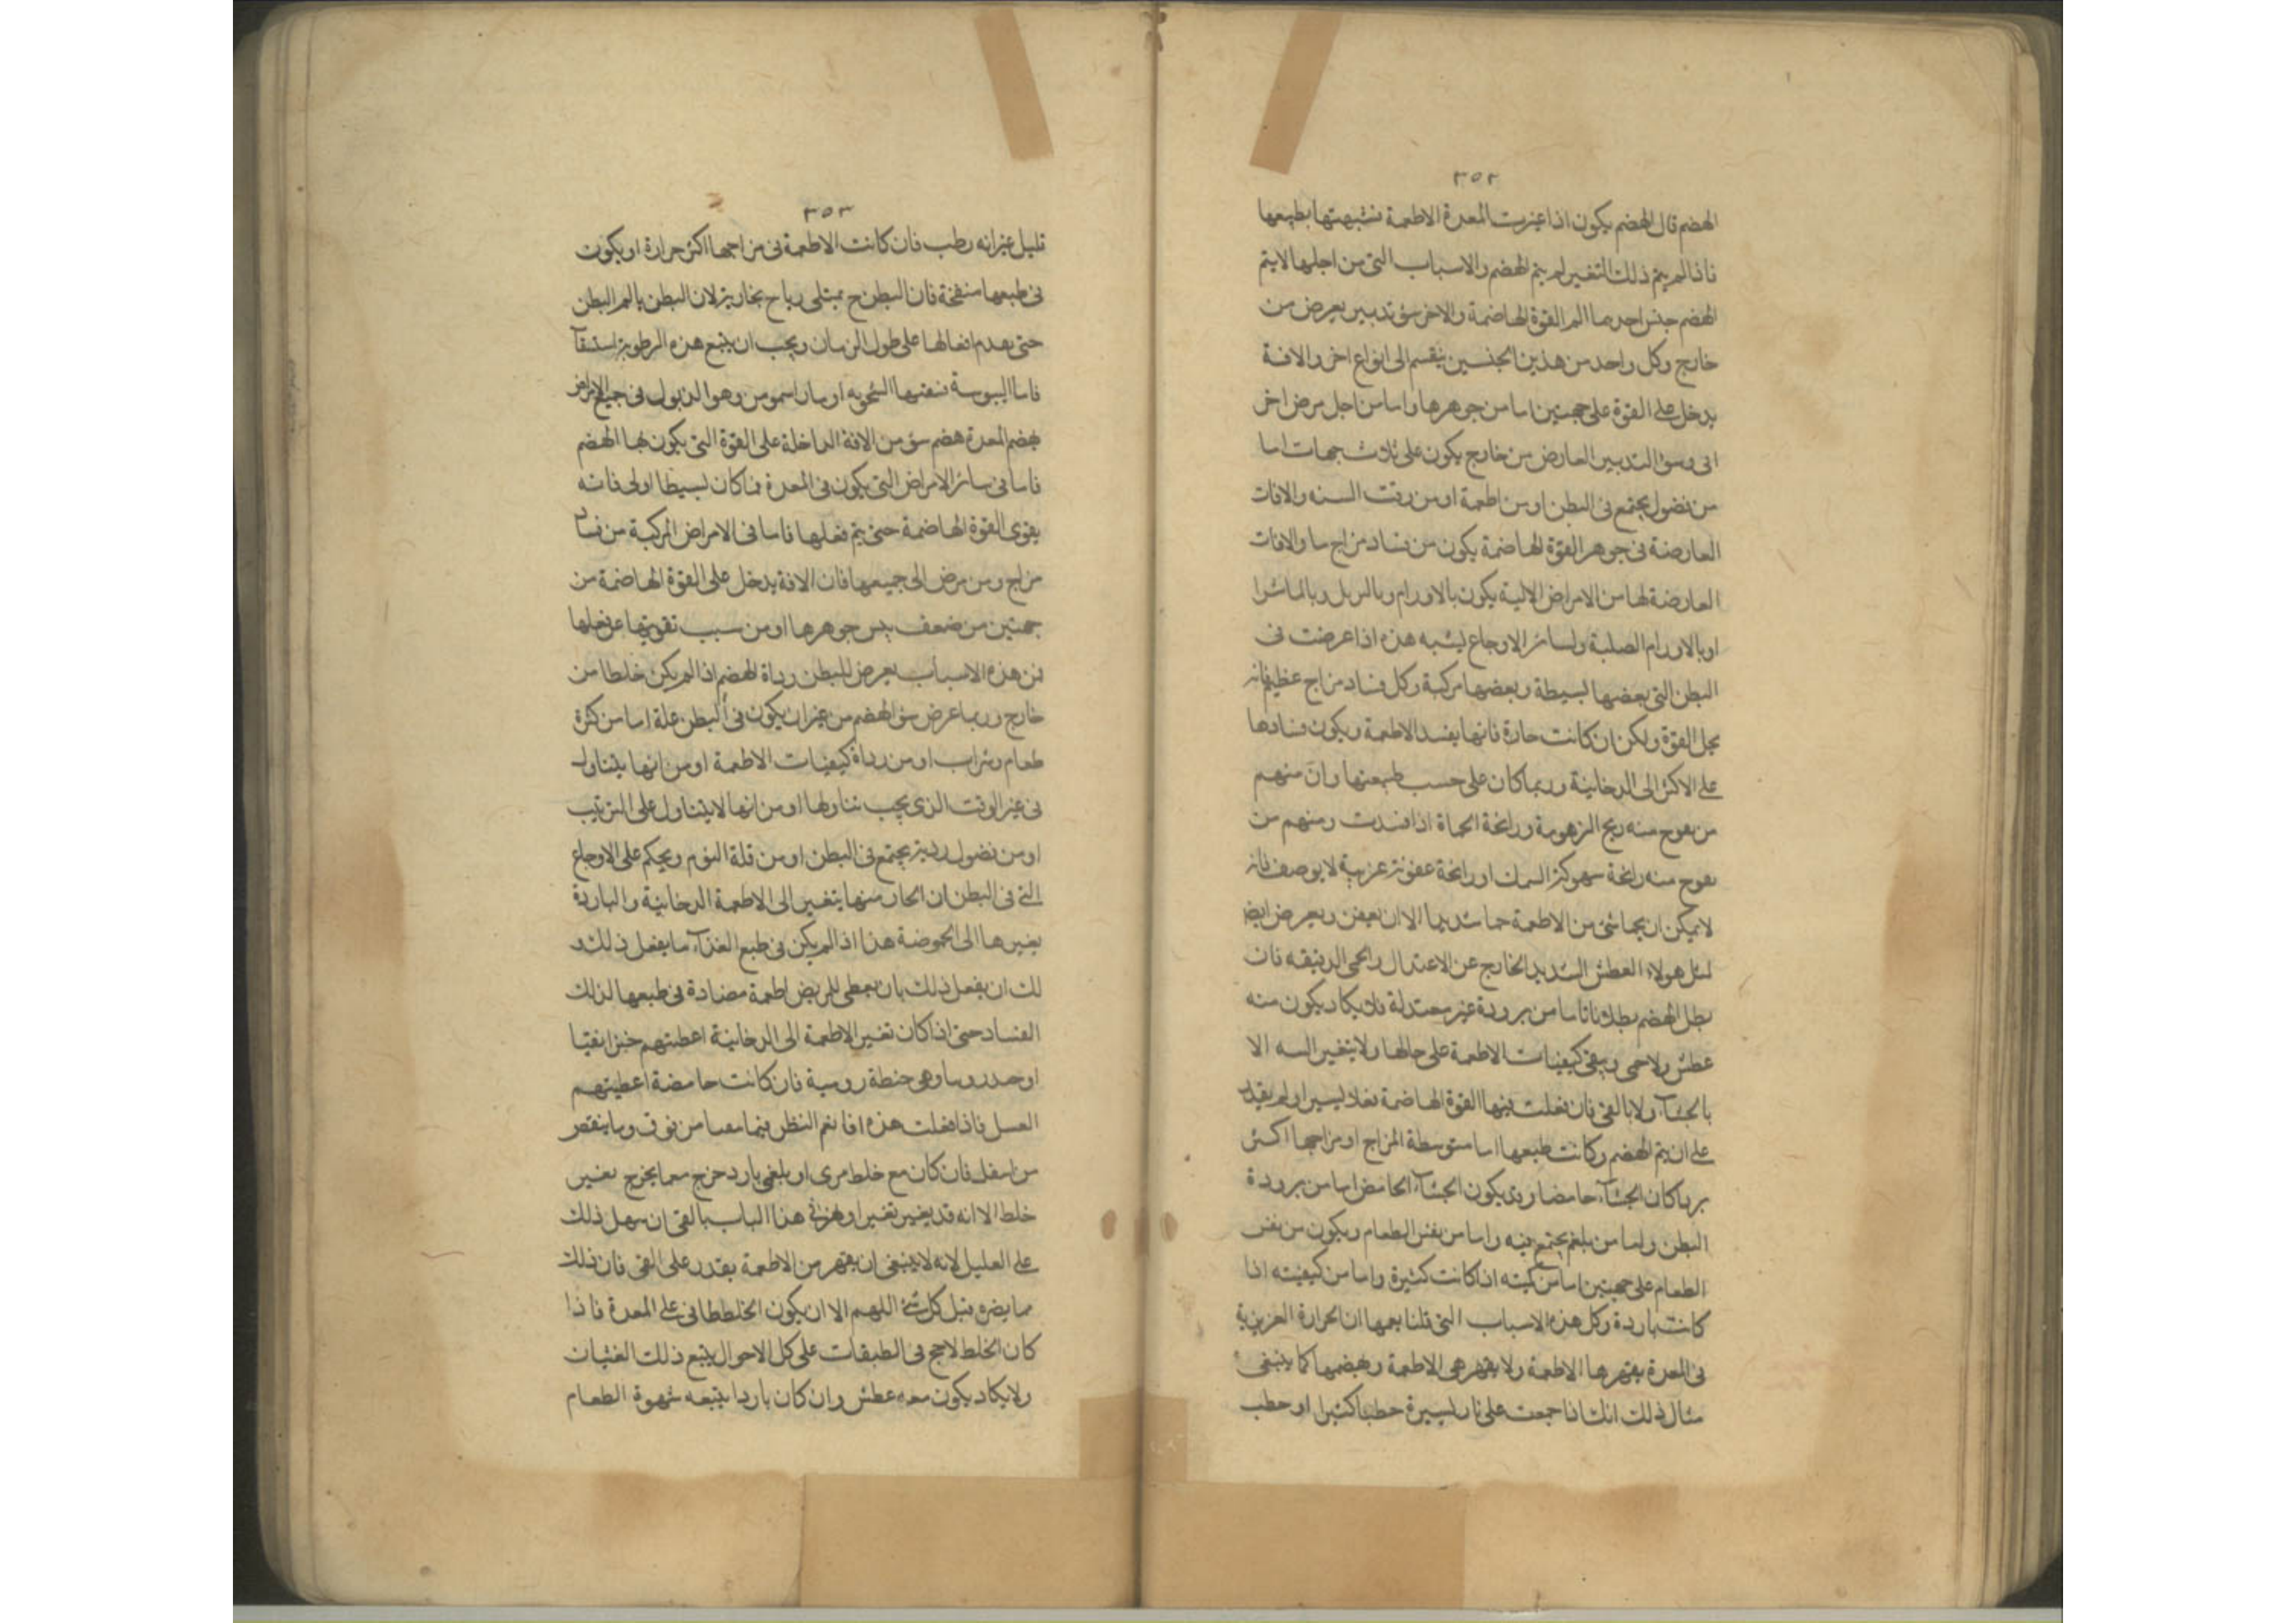 ٣٥٢
الهضم قال الهضم يكون اذا غيرت المعدة الاطعمة فشبهتها بطبيعها
فاذا لم يتم ذلك التغير لم يتم الهضم والاسباب التى من اجلها لا يتم
الهضم جنس احدهما الم القوة الهاضمة والاخر سؤ تدبير يعرض من
خارج وكل واحد من هذين الجنسين ينقسم الى انواع اخر والافة
يدخل على القوة على جهتين اما من جوهرها واما من اجل مرض اخر
الى وسؤ التدبير العارض من خارج يكون على ثلاث جهات اما
من فضول يجتمع فى البطن او من اطعمة او من وقت السنه والافات
العارضة فى جوهر القوة الهاضمة يكون من فساد مزاج ما والافات
العارضة لها من الامراض الالية يكون بالاورام وبالدبل وبالماشرا
او بالاورام الصلبة ولسائر الاوجاع يشبه هذه اذا عرضت فى
البطن التى بعضها بسيطة وبعضها مركبة وكل فساد مزاج عظيم فانه
يحل القوة ولكن ان كانت حارة فانها يفسد الاطعمة ويكون فسادها
على الاكثر الى الدخانية وربما كان على حسب طبيعتها وان منهم
من يفوح منه ريح الزهومة ورائحة الحماة اذا فسدت ومنهم من
يفوح منه رائحة سهوكة السمك او رائحة عفونة غريبة لا يوصف فانه
لا يمكن ان شئ من الاطعمة الا ان يعفن ويعرض ايضا
لمثل هولاء العطش الشديد الخارج عن الاعتدال والحمى الدقيقه فان
بطل الهضم بطلانا تاما من برودة غير معتدلة فلا يكاد يكون منه
عطش ولا حمى ويبقى كيفيات الاطعمة على حالها ولا يتغير البته الا
بالجشآء ولا بالقئ فان فعلت فيها القوة الهاضمة فعلا يسيرا ولم يقدر
على ان يتم الهضم وكانت طبيعها اما متوسطة المزاج او مزاجها اكثر
بردا كان الجشآء حامضا وقد يكون الجشآء الحامض اما من برودة
البطن واما من بلغم يجتمع فيه واما من نفس الطعام ويكون من نفس
الطعام على جهتين اما من كميته اذا كانت كثيرة واما من كيفيته اذا
كانت باردة وكل هذه الاسباب التى قلنا يعمها ان الحرارة الغريزية
فى المعدة يقهرها الاطعمة ولا يقهر هى الاطعمة ويهضمها كما ينبغى
مثال ذلك انك اذا جمعت على نار يسيرة حطبا كثيرا او حطب
٣٥٣
قليل غير انه رطب فان كانت الاطعمة فى مزاجها اكثر حرارة او يكون
فى طبعها منفخة فان البطن ح يمتلى رياح بخارية لان البطن يالم البطن
حتى يعدم افعالها على طول الزمان ويجب ان يتبع هذه الرطوبة استسقآ
فاما اليبوسة وهو الذبول فى جميع الامراض
يهضم المعدة هضم سؤ من الافة الداخلة على القوة التى يكون بها الهضم
فاما فى سائر الامراض التى يكون فى المعدة فما كان بسيطا اولى فانه
يقوى القوة الهاضمة حتى يتم فعلها فاما فى الامراض المركبة من فساد
مزاج ومن مرض الى جميعها فان الافة يدخل على القوة الهاضمة من
جهتين من ضعف يمس جوهرها او من سبب تعويقها عن فعلها
فمن هذه الاسباب يعرض للبطن رداة الهضم اذا لم يكن خلطا من
خارج وربما عرض سؤ الهضم من غير ان يكون فى البطن علة اما من كثرة
طعام وشراب او من رداة كيفيات الاطعمة او من انها يتناول
فى غير الوقت الذى يجب تناولها او من انها لا يتناول على الترتيب
او من فضول ردية يجتمع فى البطن او من قلة النوم ويحكم على الاوجاع
التى فى البطن ان الحار منها يتغير الى الاطعمة الدخانية والباردة
يغيرها الى الحموضة هذا اذا لم يكن فى طبع الغذآء ما يفعل ذلك و
لك ان يفعل ذلك بان يعطى للمريض اطعمة مضادة فى طبعها لذلك
الفساد حتى اذا كان تغير الاطعمة الى الدخانية اعطيتهم خبزا نقيا
او وهى حنطة رومية فان كانت حامضة اعطيتهم
العسل فاذا فعلت هذه افا نعم النظر فيما معا من فوق وما ينقص
من اسفل فان كان مع خلط مرى او بلغمى بارد خرج مما يخرج تغير
خلط الا انه قد يغير تغيرا هذا الباب بالقئ ان سهل ذلك
على العليل لانه لا ينبغى ان يقهر من الاطعمة بقدر على القئ فان ذلك
مما يضره قبل كل شئ اللهم الا ان يكون الخلط طافى على المعدة فاذا
كان الخلط لاحج فى الطبقات على كل الاحوال يتبع ذلك الغثيان
ولا يكاد يكون معه عطش وان كان باردا يتبعه شهوة الطعام